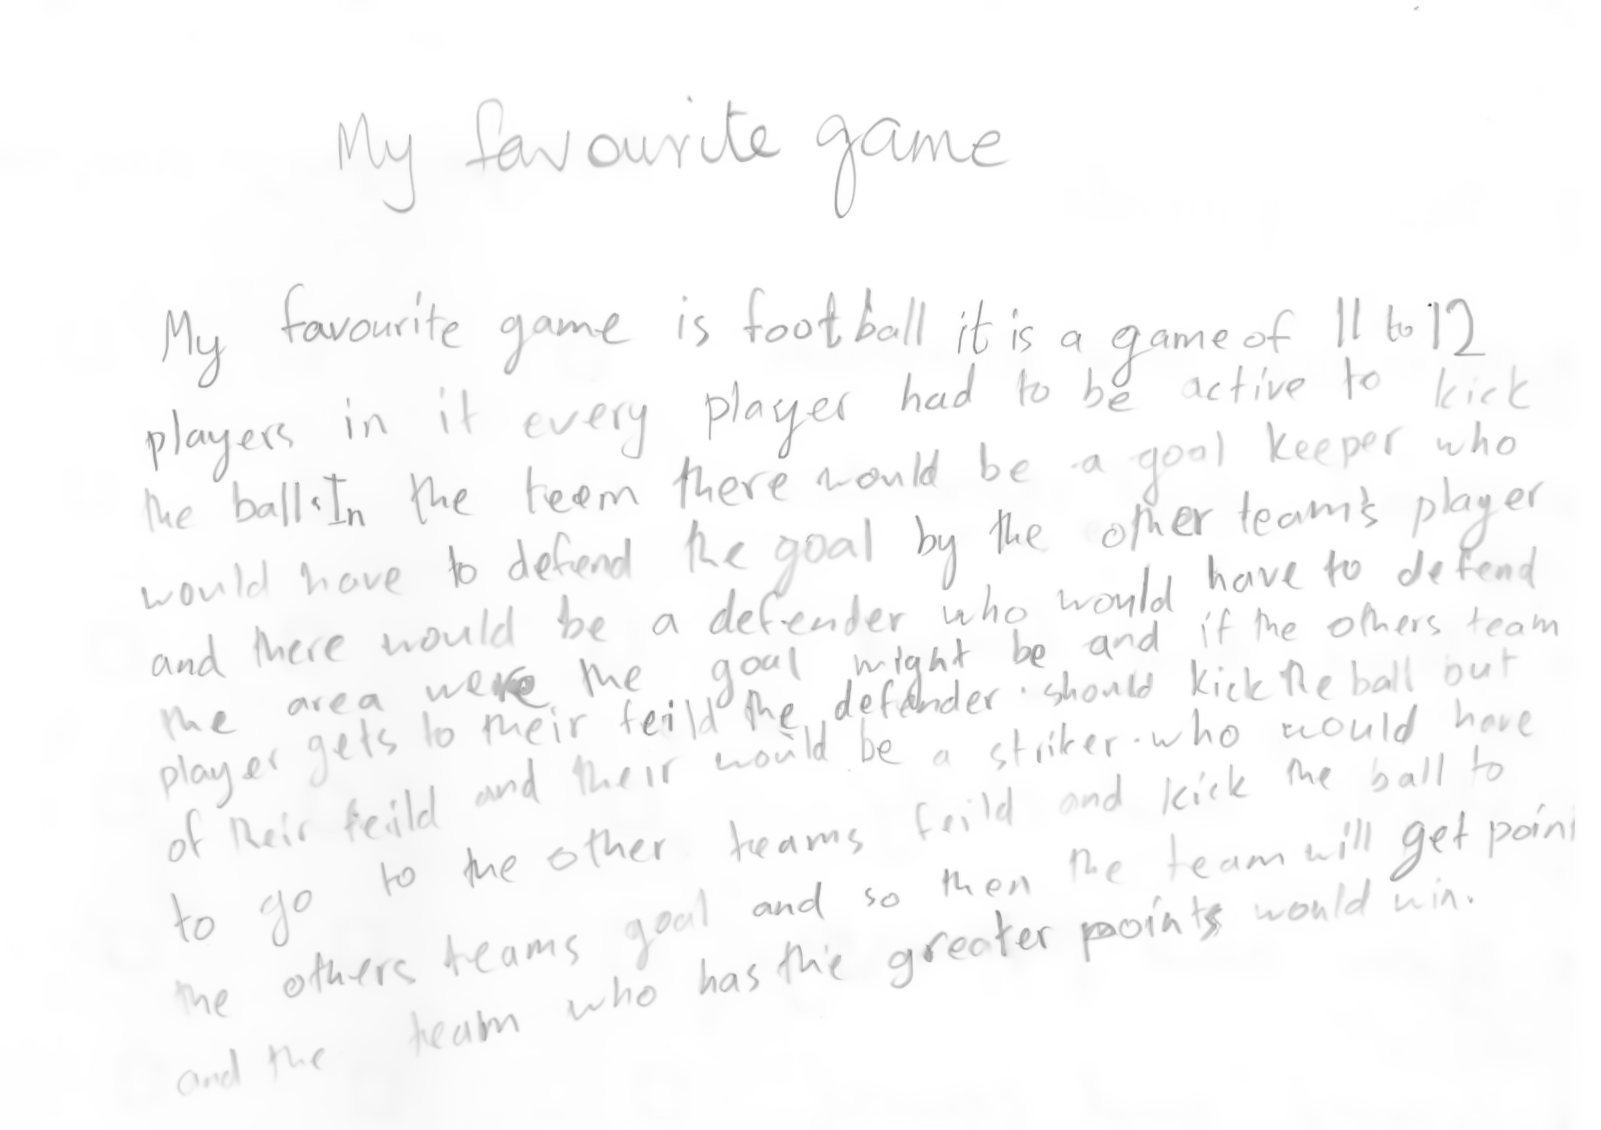 My favourite game
My favourite game is football it is a game of 11 to 12
players in it every player had to be active to kick
the ball. In the teem there would be a goal keeper who
would have to defend the goal by the other team's player
and there would be a defender who would have to defend
the area were the goal might be and if the others team
player gets to their feild the defender should kick the ball out
of their feild and their would be a striker who would have
to go to the other teams feild and kick the ball to
the others teams goal and so then the team will get point
and the team who has the greater points would win.